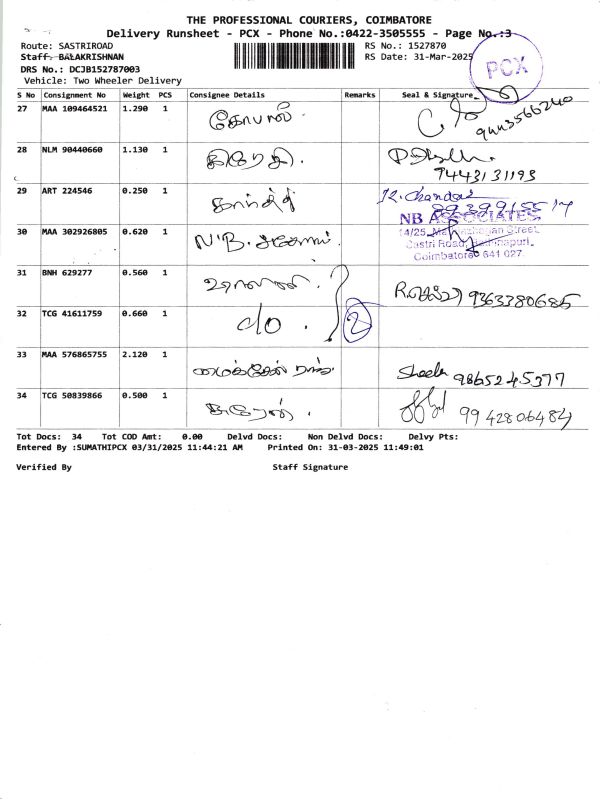 THE PROFESSIONAL COURIERS, COIMBATORE
Delivery Runsheet - PCX - Phone No.:0422-3505555 - Page No.:3
Route: SASTRIROAD
RS No.: 1527870
Staff: BALAKRISHNAN
RS Date: 31-Mar-2025
DRS No.: DCJB152787003
Vehicle: Two Wheeler Delivery
PCX
S No Consignment No Weight PCS Consignee Details Remarks Seal & Signature
27 MAA 109464521 1.290 1 கோபால்
28 NLM 90440660 1.130 1
74431 31193
29 ART 224546 0.250 1 கார்த்தி K. Chandar
NB ASSOCIATES
30 MAA 302926805 0.620 1 N.B.
14/25, Street,
Sastri Road,
Coimbatore 641 027.
31 BNH 629277 0.560 1
9363380685
32 TCG 41611759 0.660 1 c/o 2
33 MAA 576865755 2.120 1 Sheela 9865245377
34 TCG 50839866 0.500 1 சுரேஷ் 9942806484
Tot Docs: 34 Tot COD Amt: 0.00 Delvd Docs: Non Delvd Docs: Delvy Pts:
Entered By :SUMATHIPCX 03/31/2025 11:44:21 AM Printed On: 31-03-2025 11:49:01
Verified By Staff Signature